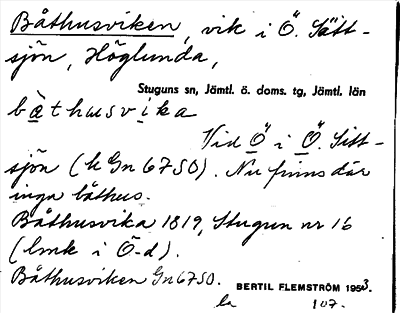 Båthusviken, vik i Ö. Sätt-
sjön, Höglunda,
Stuguns sn, Jämtl. ö. doms. tg, Jämtl. län
båthusvika
Vid Ö i Ö. Sitt-
sjön (k Gn 6750). Nu finns där
inga båthus.
Båthusvika 1819, Stugun nr 16
(lmk i Ö-d).
Båthusviken Gn 6750.
BERTIL FLEMSTRÖM 1953.
la 107.